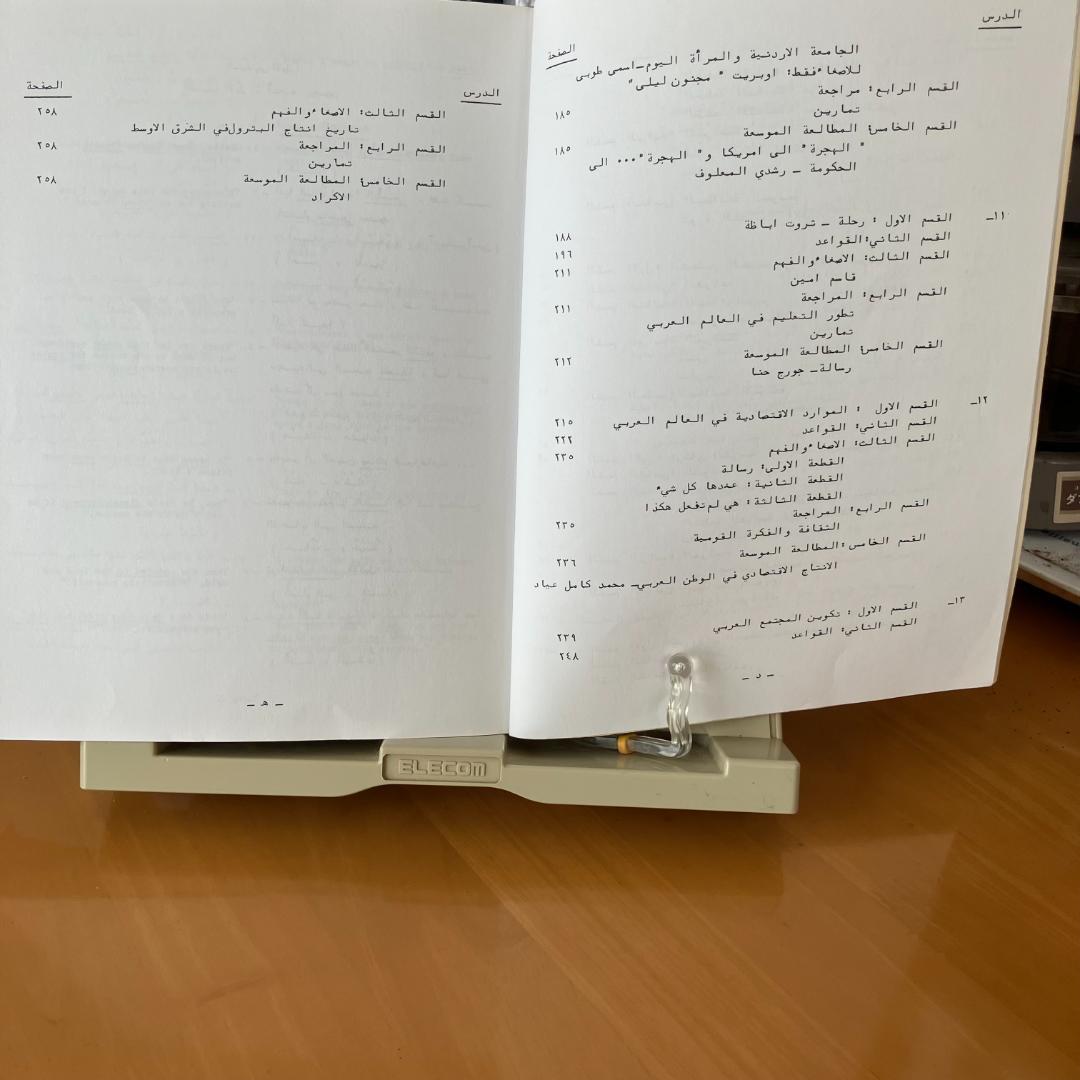 الدرس
الصفحة
الجامعة الاردنية والمرأة اليوم_اسمى طوبى
للاصغاء فقط: اوبريت " مجنون ليلى"
القسم الرابع: مراجعة ١٨٥
تمارين
القسم الخامس: المطالعة الموسعة ١٨٥
" الهجرة" الى امريكا و" الهجرة"... الى
الحكومة _ رشدي المعلوف
١١_ القسم الاول : رحلة _ ثروت اباظة ١٨٨
القسم الثاني: القواعد ١٩٦
القسم الثالث: الاصغاء والفهم ٢١١
قاسم امين
القسم الرابع: المراجعة ٢١١
تطور التعليم في العالم العربي
تمارين
القسم الخامس: المطالعة الموسعة ٢١٢
رسالة_ جورج حنا
١٢_ القسم الاول : الموارد الاقتصادية في العالم العربي ٢١٥
القسم الثاني: القواعد ٢٢٢
القسم الثالث: الاصغاء والفهم ٢٣٥
القطعة الاولى: رسالة
القطعة الثانية: عندها كل شيء
القطعة الثالثة: هي لم تفعل هكذا
القسم الرابع: المراجعة ٢٣٥
الثقافة والفكرة القومية
القسم الخامس: المطالعة الموسعة ٢٣٦
الانتاج الاقتصادي في الوطن العربي_ محمد كامل عياد
١٣_ القسم الاول : تكوين المجتمع العربي ٢٣٩
القسم الثاني: القواعد ٢٤٨
_ د _
الدرس الصفحة
القسم الثالث: الاصغاء والفهم ٢٥٨
تاريخ انتاج البترول في الشرق الاوسط
القسم الرابع: المراجعة ٢٥٨
تمارين
القسم الخامس: المطالعة الموسعة ٢٥٨
الاكراد
_ ه _
ELECOM